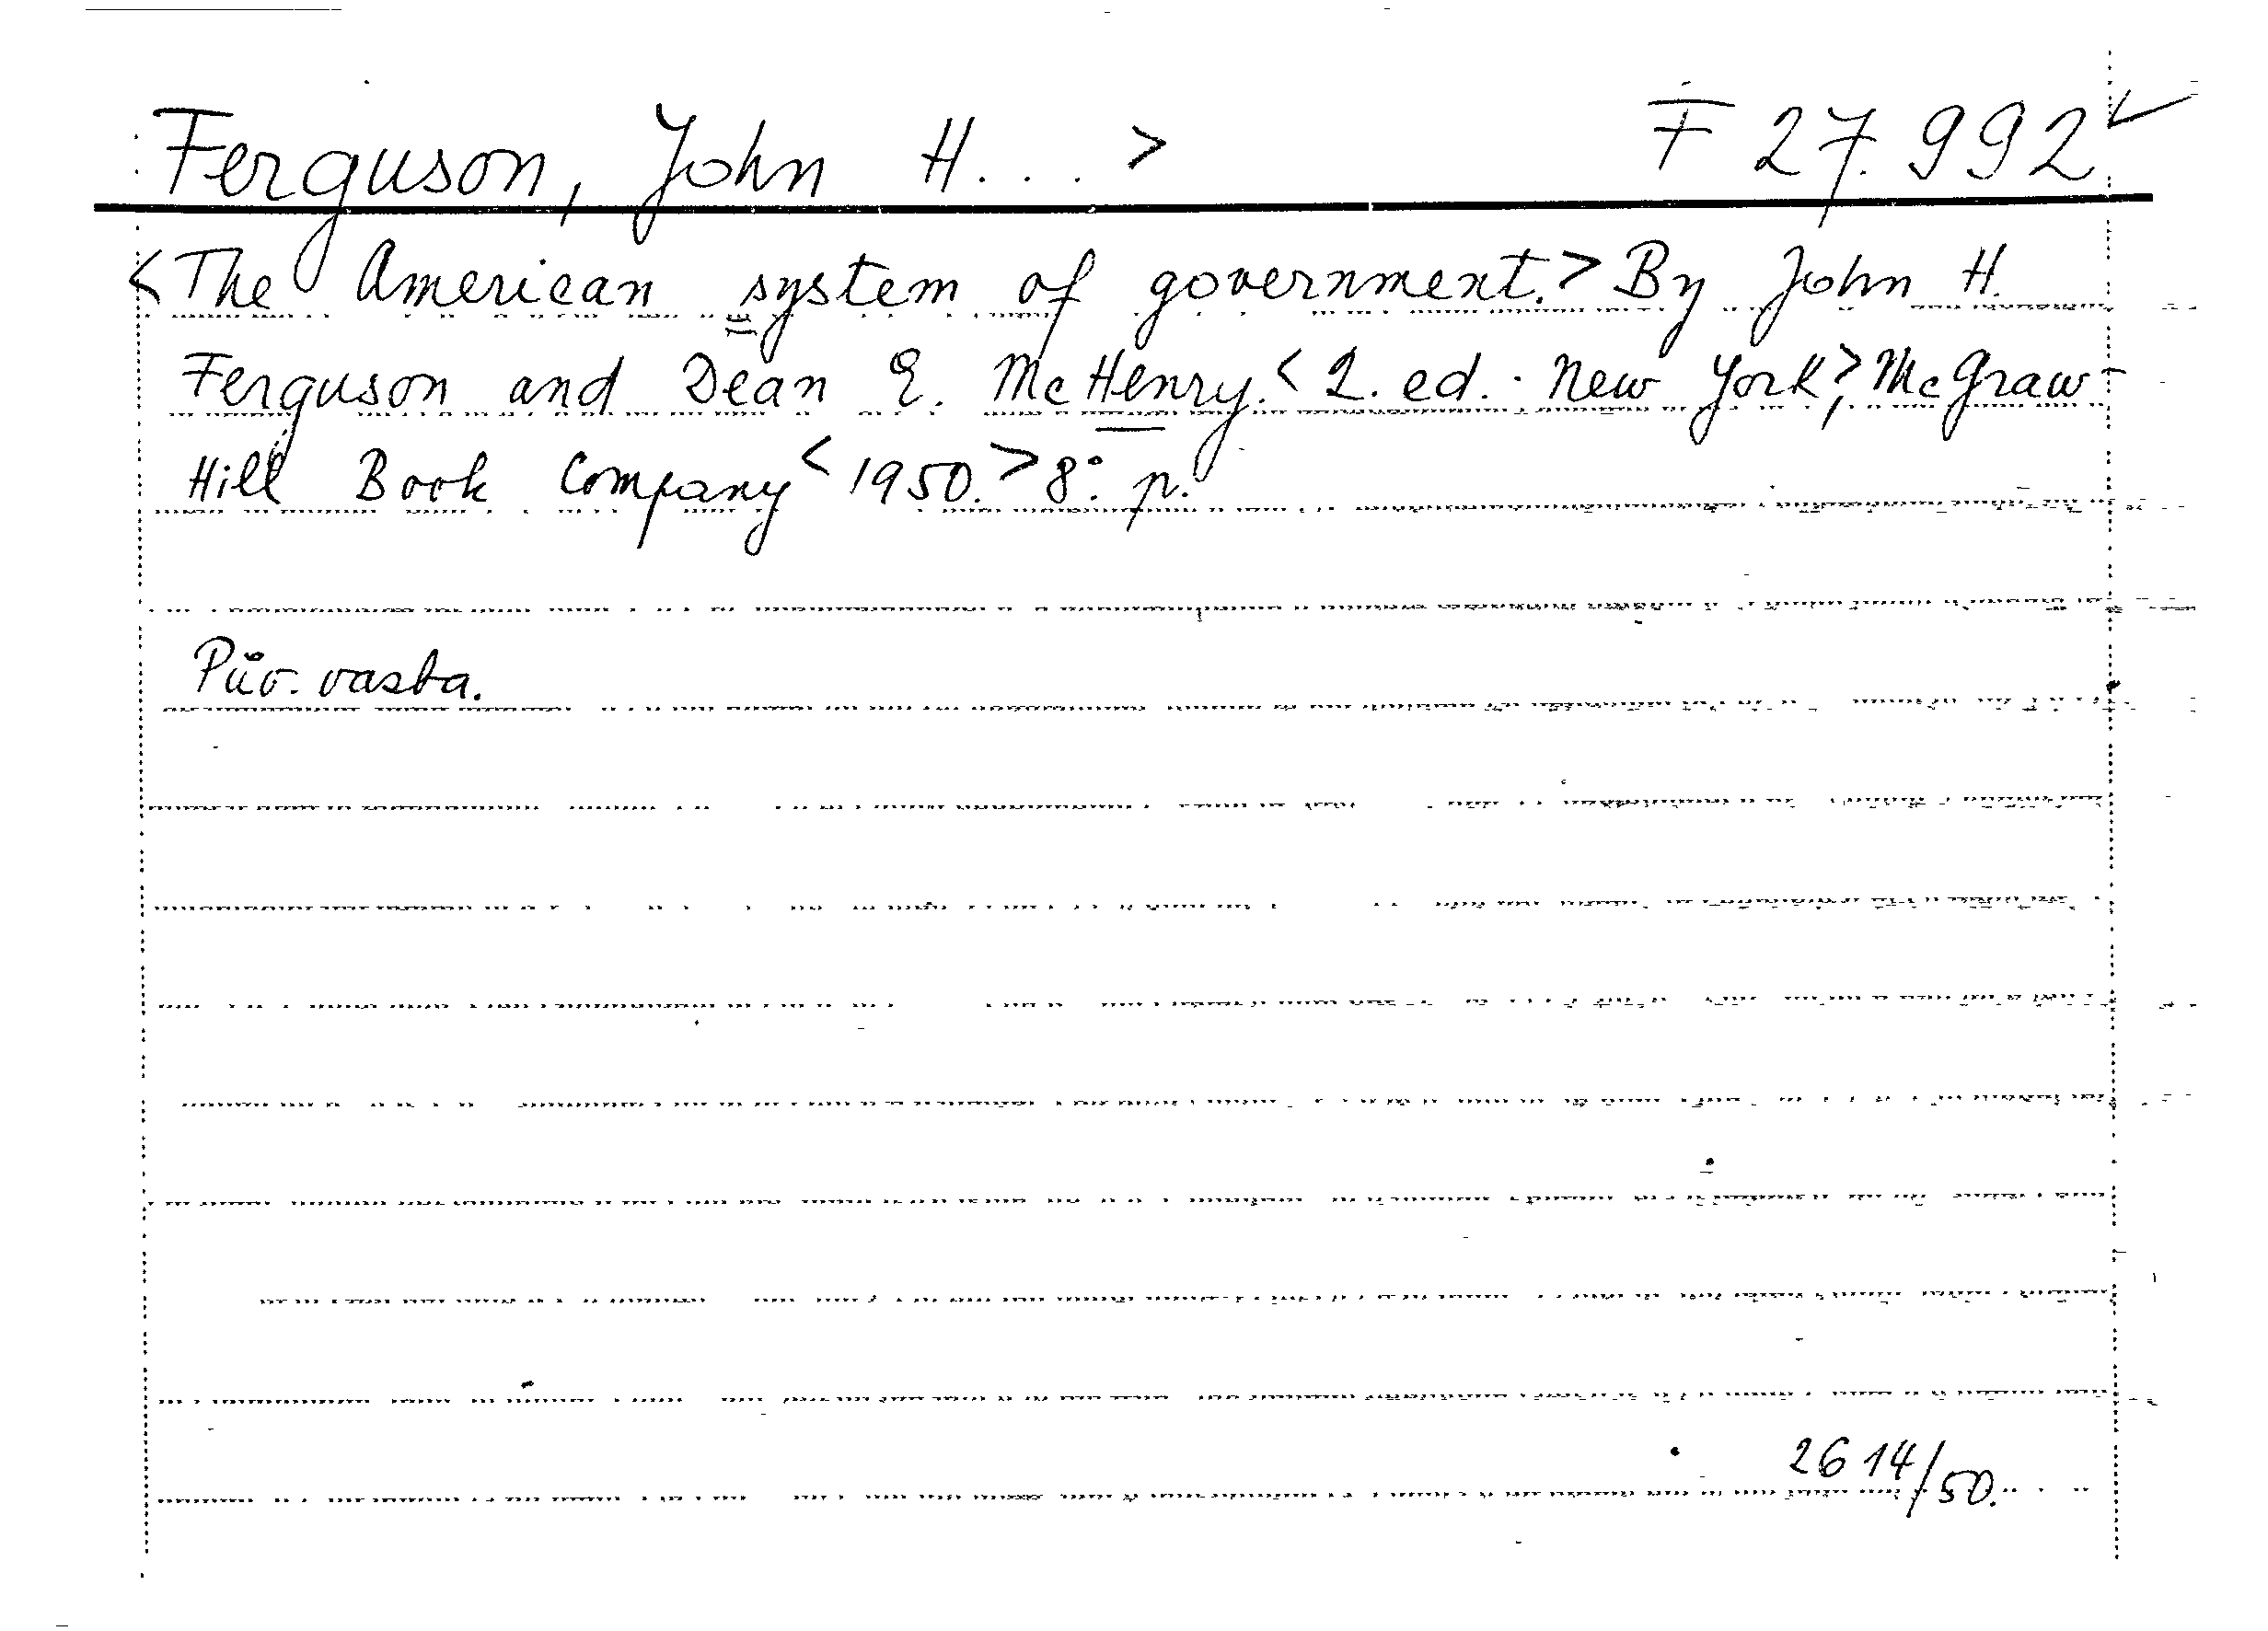 Ferguson, John H... > F 27.992
<The American system of government.> By John H.
Ferguson and Dean E. McHenry. < 2. ed. - New York,> McGraw-
Hill Book Company < 1950. > 8°. p.
Pův. vazba.
2614/50.